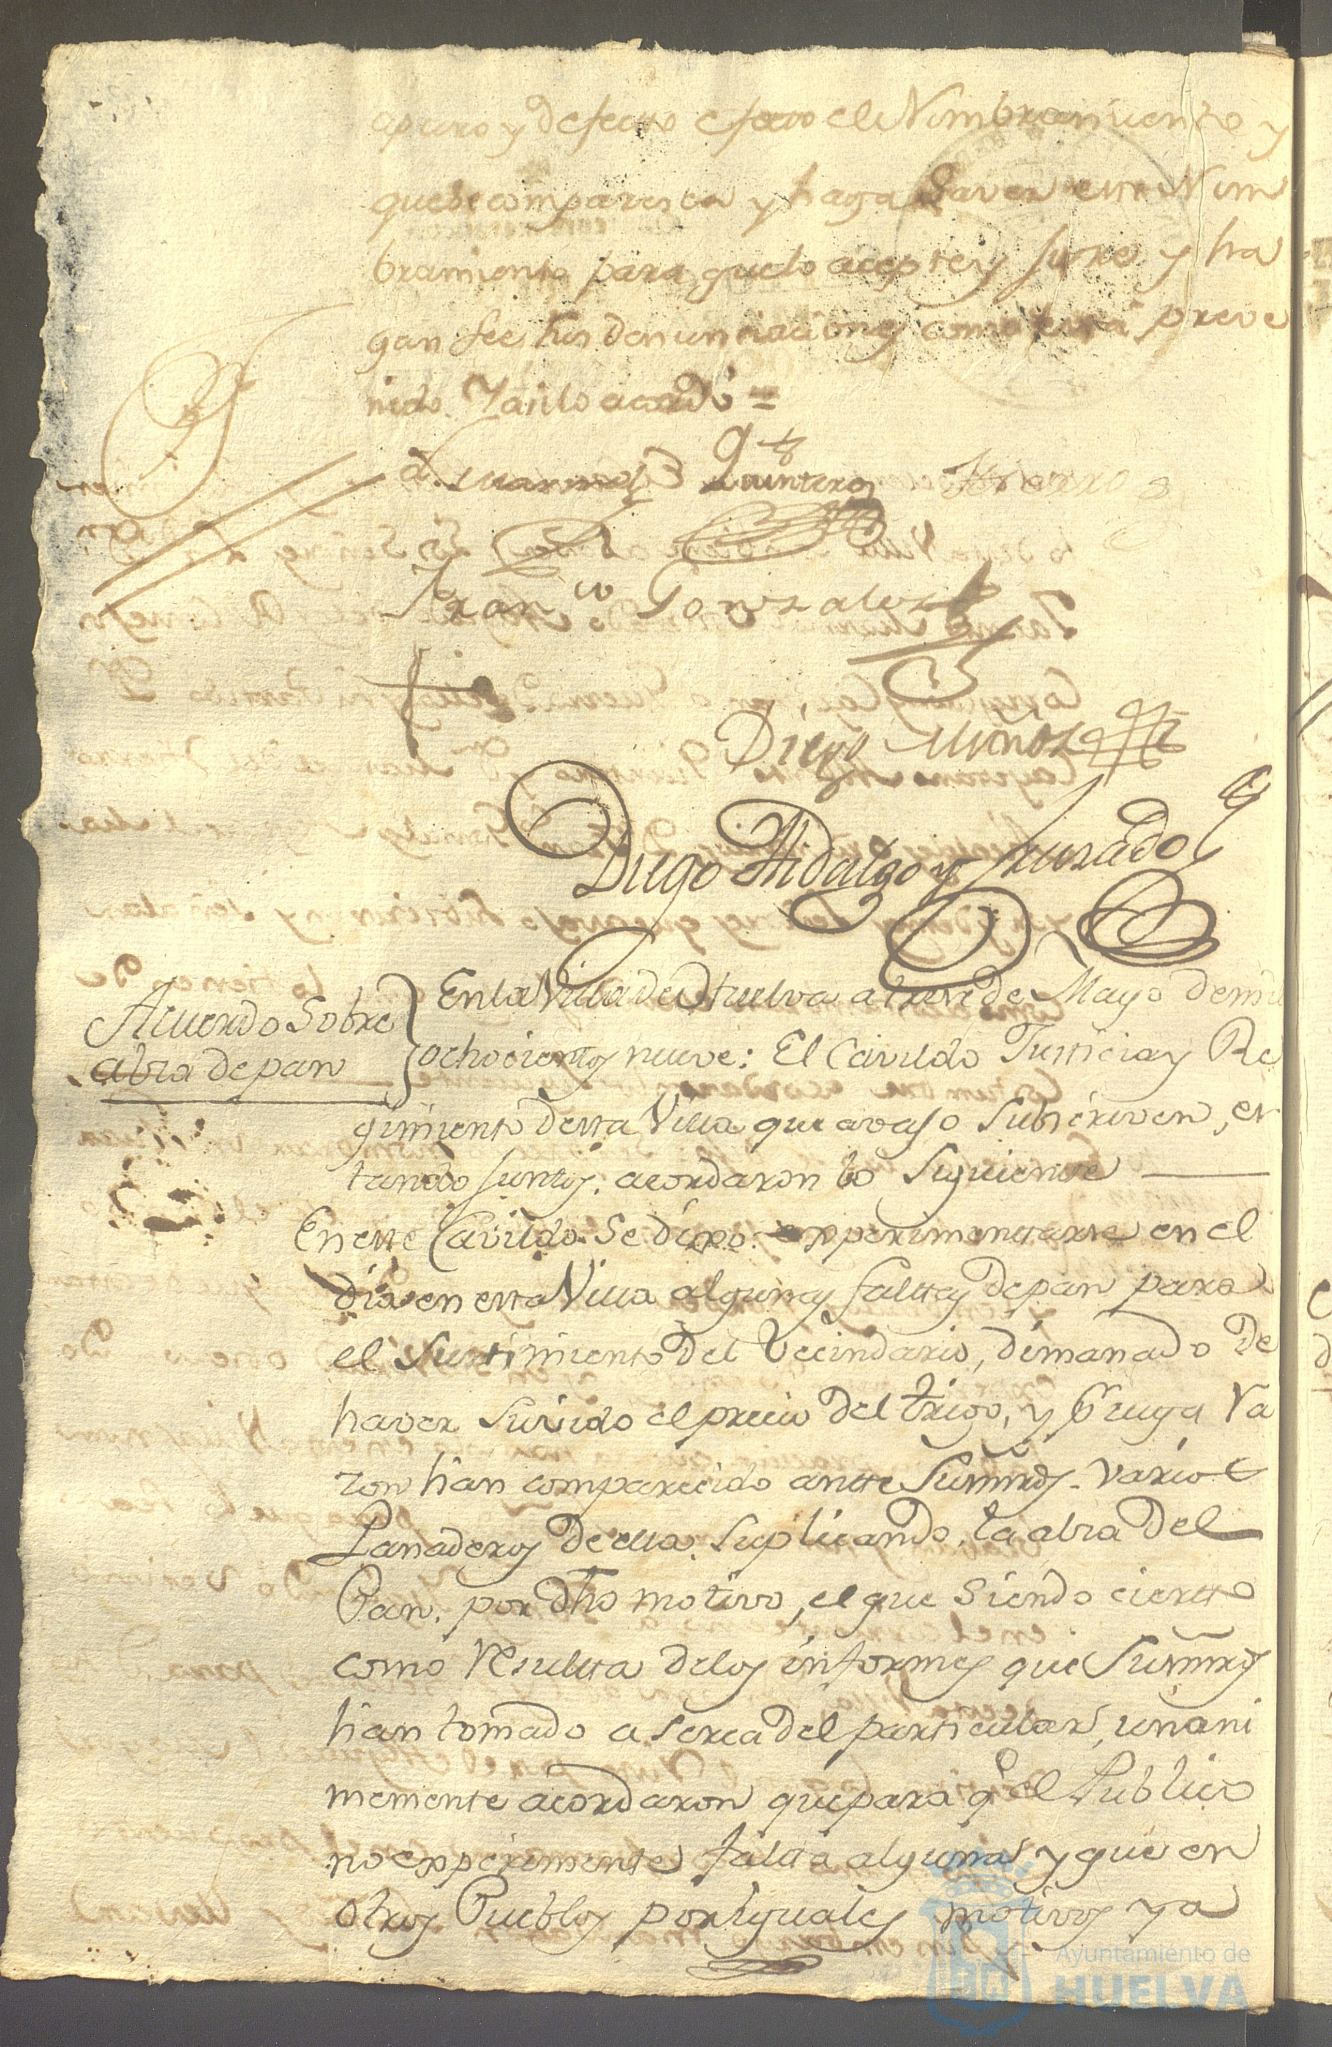 apuro y defecto efecto el Nombramiento y
que se comparesca y haga Saver este Nom
bramiento para que lo acepte y jure y ha
gan fee sus denunciaciones como esta preve
nido. Y asi lo acordó =
Quintero
Fran.co Gonzalez
Diego Muñoz
Diego Hidalgo y Jurado
Acuerdo Sobre
abza de pan
En la Villa de Huelva a trese de Mayo de mil
ochocientos nueve: El Cavildo Justicia y Re
gimiento desta Villa que avajo Subscriven, es
tando juntos, acordaron lo Siguiente
En este Cavildo Se dixo experimentarse en el
dia en esta Villa algunas faltas de pan para
el Surtimiento del Vecindario, dimanado de
haver Suvido el precio del trigo, y p.r cuya Ra
zon han comparecido ante Sus mrds. varios
Panaderos de ella, Suplicando, la alza del
Pan, por dho motivo, el que Siendo cierto
como resulta de los informes que Sus mrds
han tomado aserca del particular, unani
memente acordaron que para q.e el Publico
no experimente falta alguna y que en
otros Pueblos por iguales motivos ya
Ayuntamiento de
HUELVA